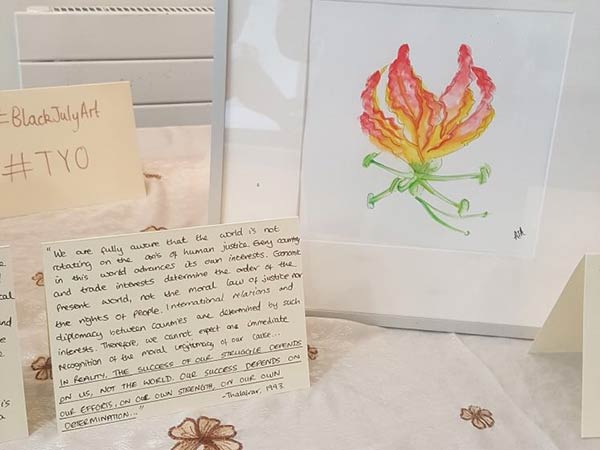 #BlackJulyArt
#TYO
"We are fully aware that the world is not
rotating on the axis of human justice. Every country
in this world advances its own interests. Economic
and trade interests determine the order of the
present world, not the moral law of justice nor
the rights of people. International relations and
diplomacy between countries are determined by such
interests. Therefore, we cannot expect an immediate
recognition of the moral legitimacy of our cause...
IN REALITY, THE SUCCESS OF OUR STRUGGLE DEPENDS
ON US, NOT THE WORLD. OUR SUCCESS DEPENDS ON
OUR EFFORTS, ON OUR OWN STRENGTH, ON OUR OWN
DETERMINATION..."
-Thalaivar, 1993